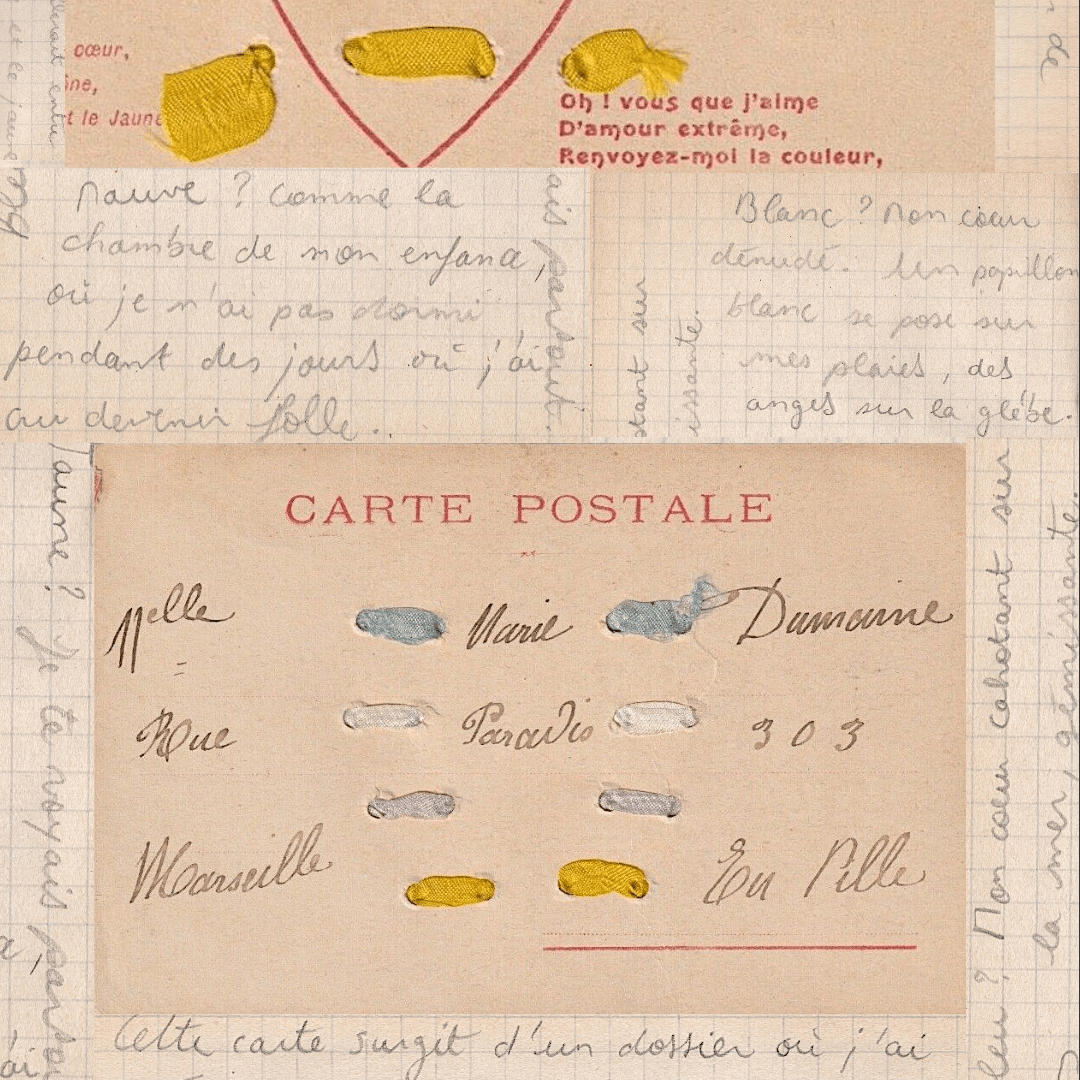 cœur,
t le Jaune
Oh ! vous que j'aime
D'amour extrême,
Renvoyez-moi la couleur,
mauve ? comme la
chambre de mon enfance,
où je n'ai pas dormi
pendant des jours où j'ai
cru devenir folle.
ais partout.
stant sur
issante.
Blanc ? Mon cœur
dénudé. Un papillon
blanc se pose sur
mes plaies, des
anges sur la glèbe.
CARTE POSTALE
Melle Marie Dumaine
Rue Paradis 303
Marseille En Ville
Jaune ? Je te voyais partou
leu ? Mon cœur cahotant sur
la mer, gémissante.
Cette carte surgit d'un dossier où j'ai